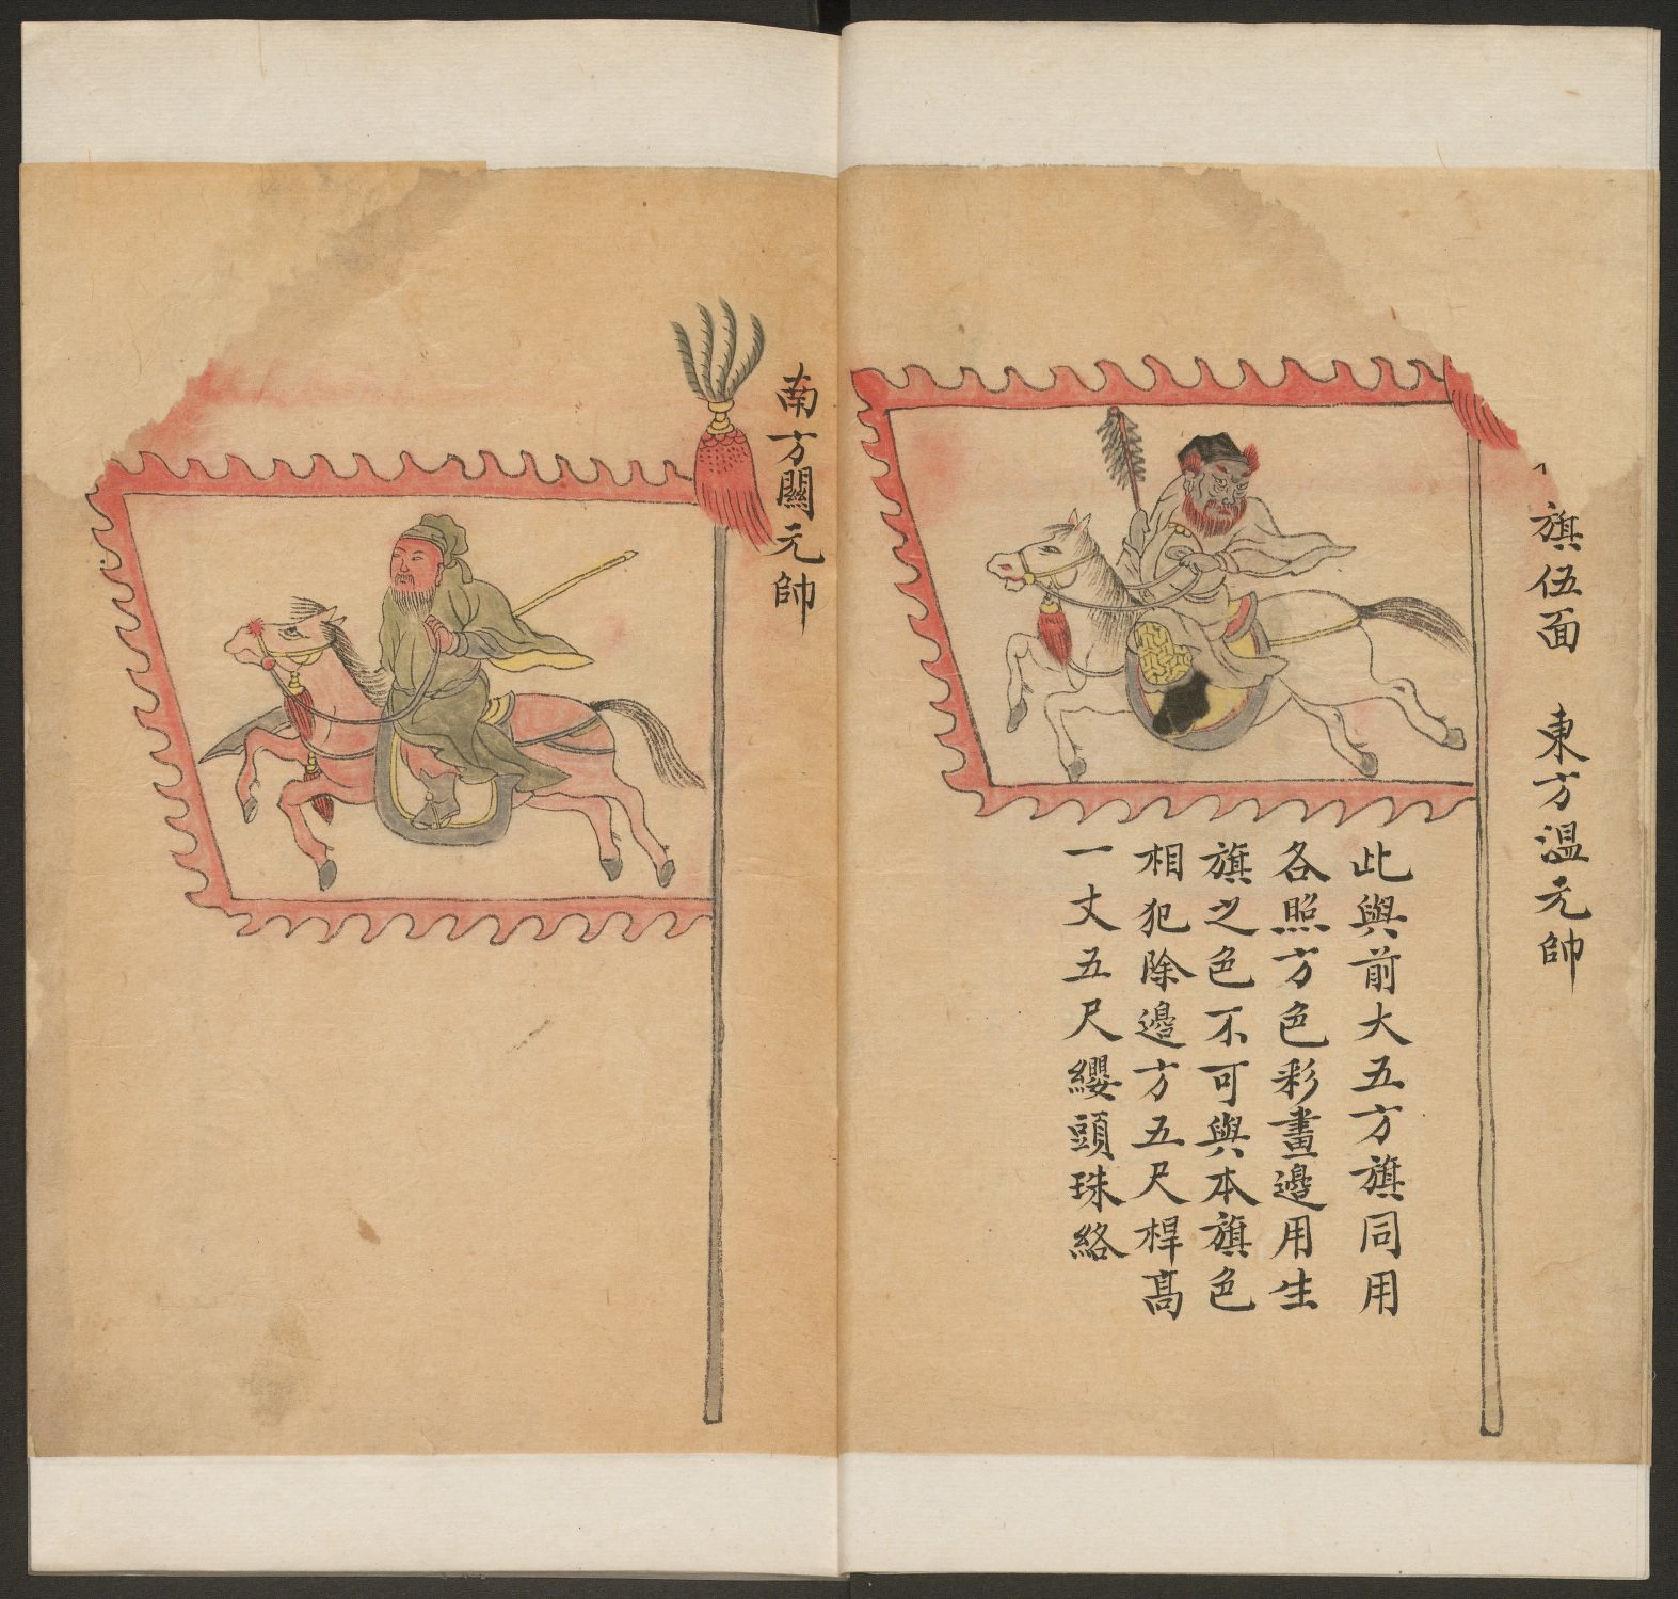 旗伍面　東方溫元帥
此與前大五方旗同用
各照方色彩畫邊用生
旗之色不可與本旗色
相犯除邊方五尺桿高
一丈五尺纓頭珠絡
南方關元帥